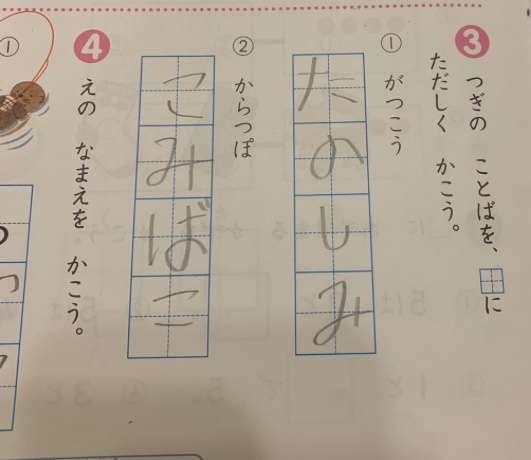 3 つぎの ことばを、田に
ただしく かこう。
① がつこう
たのしみ
② からつぽ
ごみばこ
4 えの なまえを かこう。
①